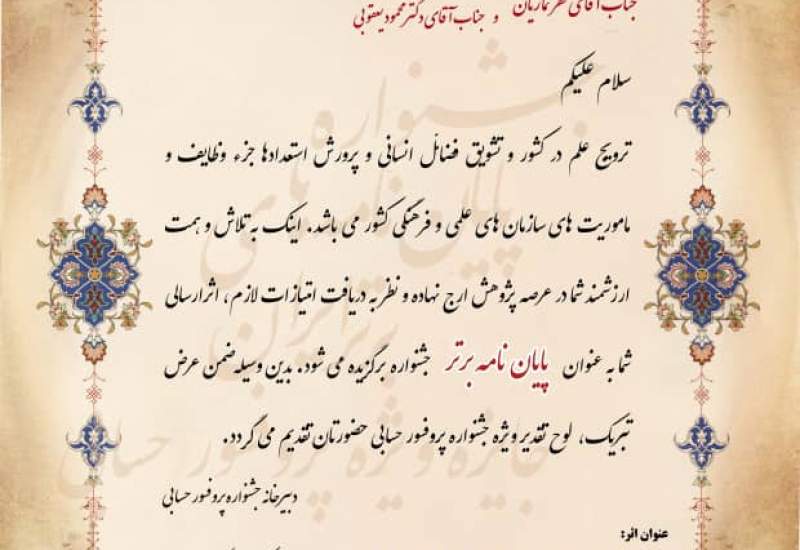 جناب آقای
و جناب آقای دکتر محمود یعقوبی
سلام علیکم
ترویج علم در کشور و تشویق فضائل انسانی و پرورش استعدادها جزء وظایف و
ماموریت های سازمان های علمی و فرهنگی کشور می باشد. اینک به تلاش و همت
ارزشمند شما در عرصه پژوهش ارج نهاده و نظر به دریافت امتیازات لازم، اثر ارسالی
شما به عنوان پایان نامه برتر جشنواره برگزیده می شود. بدین وسیله ضمن عرض
تبریک، لوح تقدیر ویژه جشنواره پروفسور حسابی حضورتان تقدیم می گردد.
دبیرخانه جشنواره پروفسور حسابی
عنوان اثر:
جشنواره
پایان نامه های
برتر ایران
جایزه ویژه پروفسور حسابی